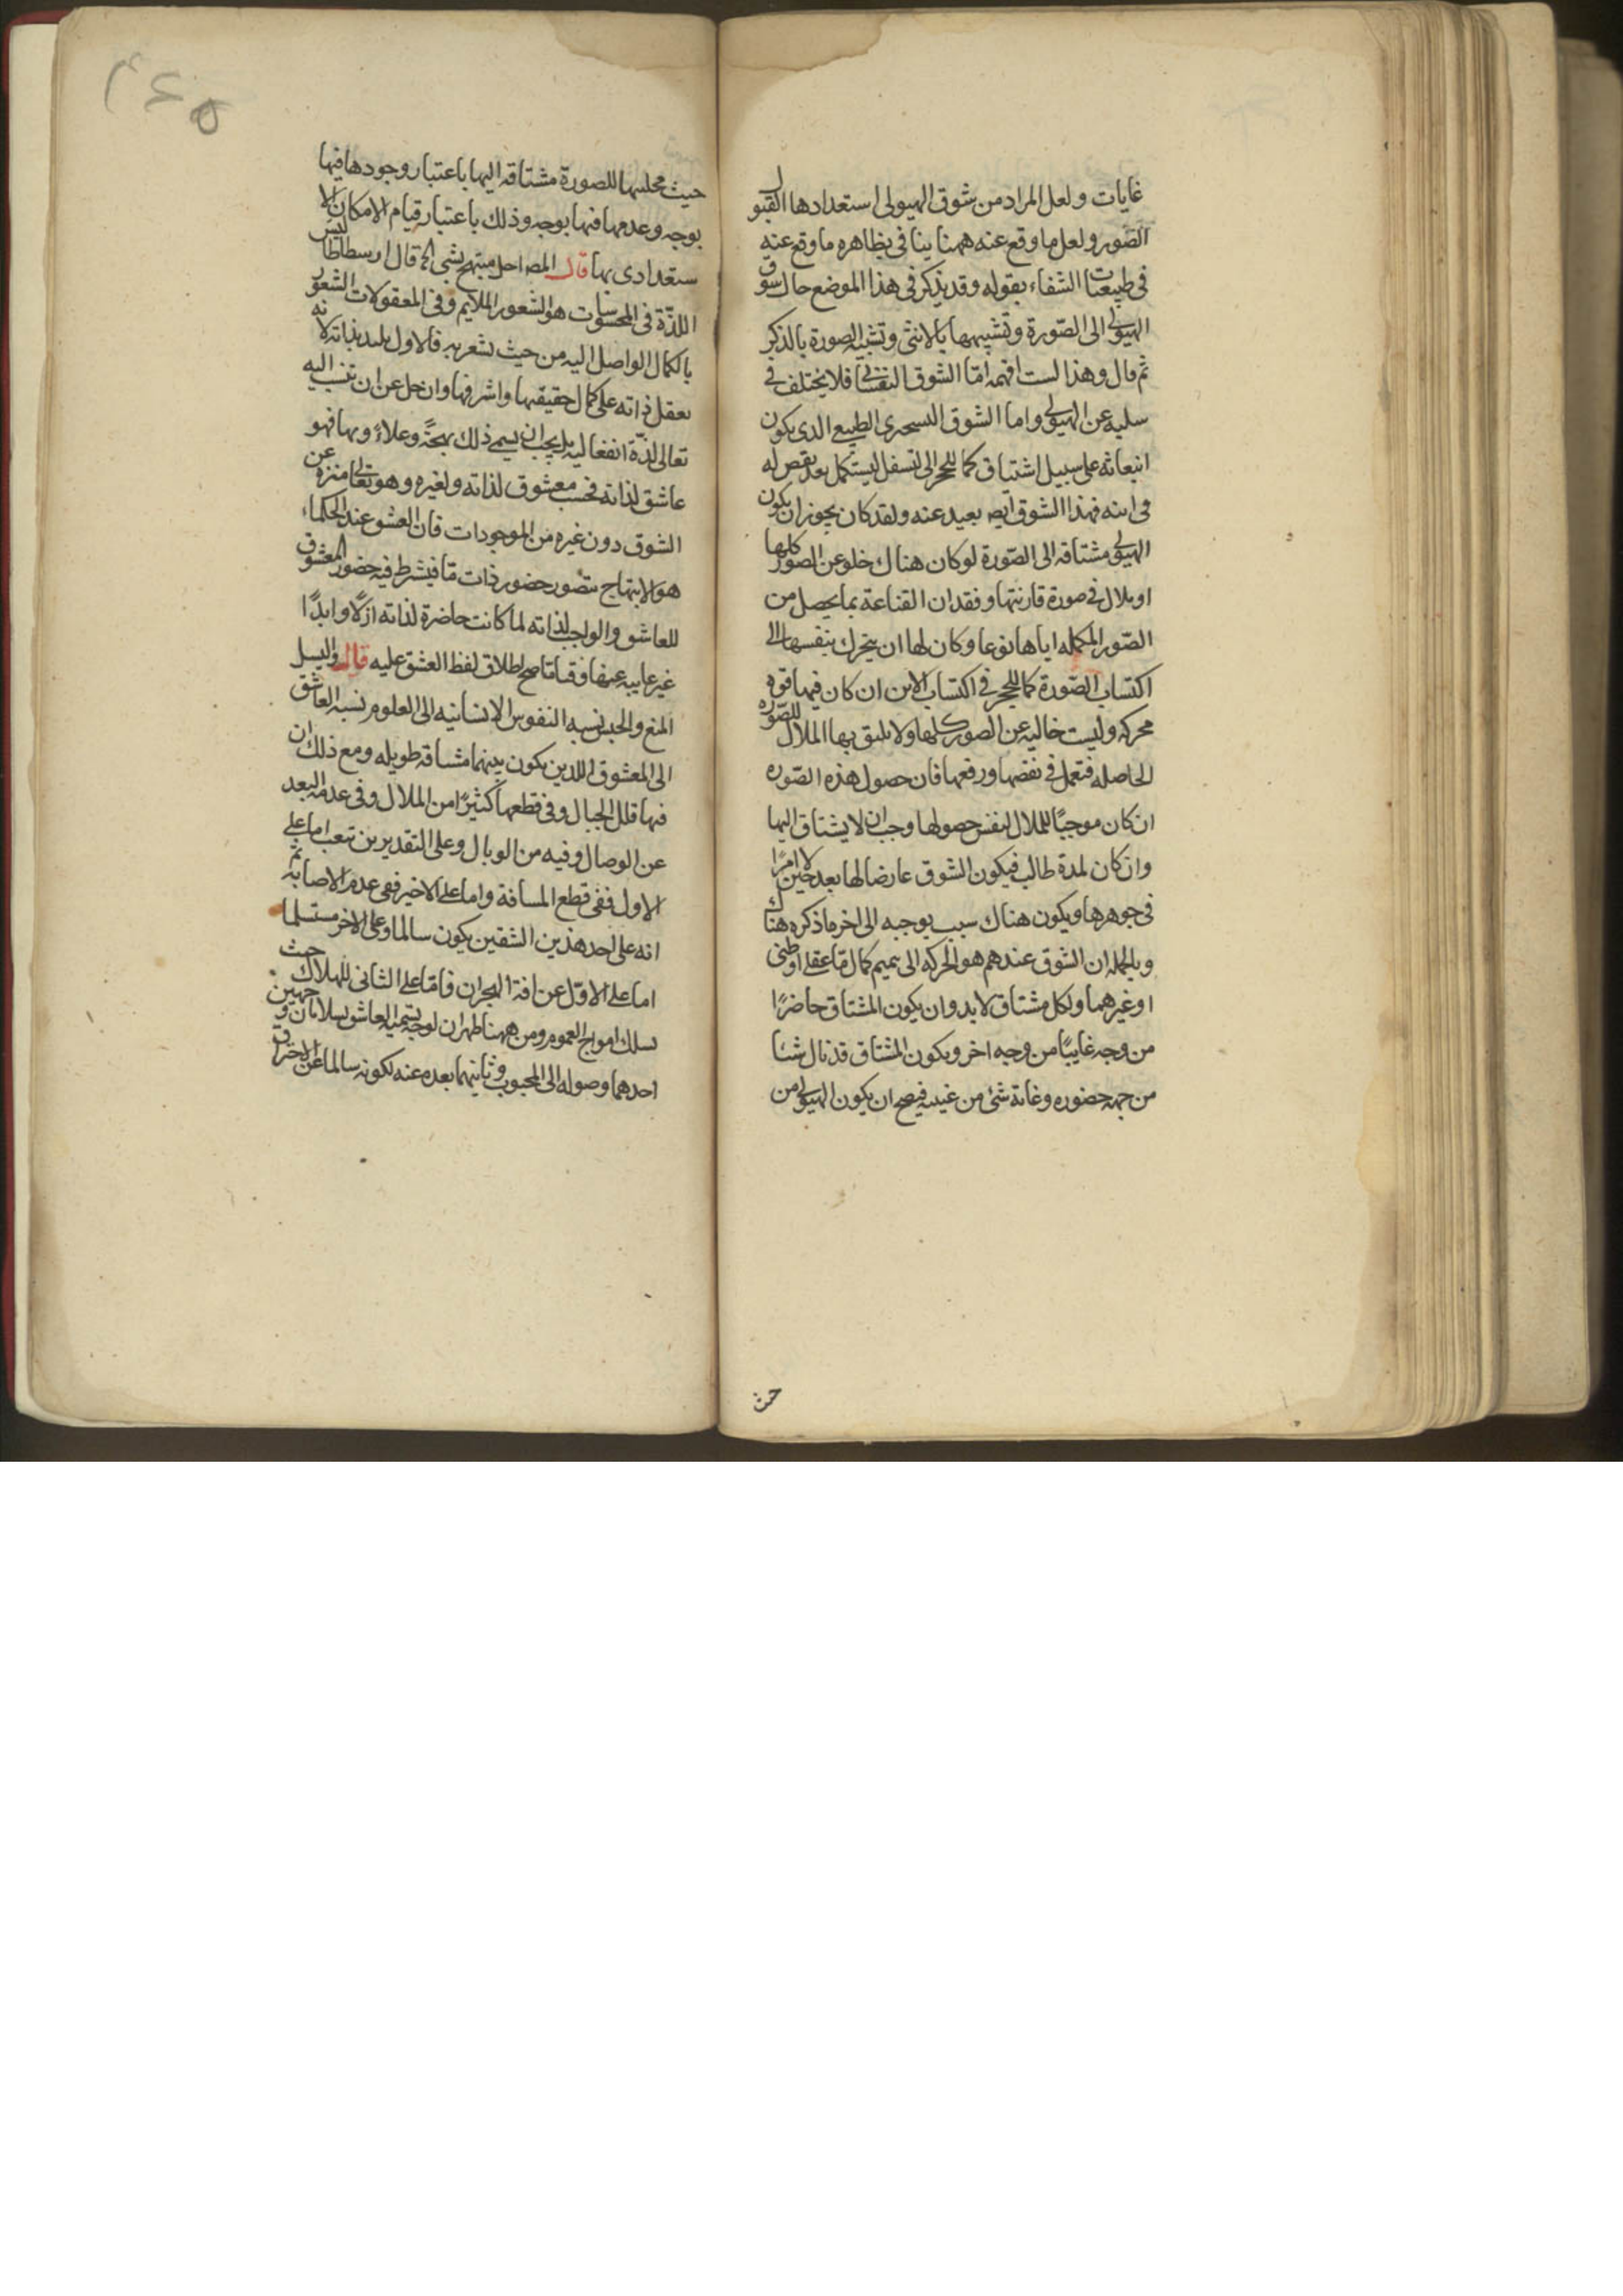 غايات ولعل المراد من شوق الهيولى استعدادها القبول
الصّور ولعل ما وقع عنه ههنا ينافى بظاهره ما وقع عنه
فى طبيعيّات الشفاء بقوله وقد يذكر فى هذا الموضع حال شوق
الهيولى الى الصّورة وتشبيهها بالانثى وتشبيه الصورة بالذكر
ثم قال وهذا لست افهمه امّا الشوق النفسانى فلا يختلف فى
سلبه عن الهيولى واما الشوق التسخيرى الطبيعى الذى يكون
انبعاثه على سبيل اشتياق كما للحجر الى التسفل ليستكمل بعد نقص له
فى اينه فهذا الشوق ايضا بعيد عنه ولقد كان يجوز ان يكون
الهيولى مشتاقه الى الصّورة لو كان هناك خلو عن الصور كلها
او ملال فى صورة قارنتها وفقدان القناعة بما يحصل من
الصّور المكمله اياها نوعا وكان لها ان يتحرك بنفسها الى
اكتساب الصّورة كما للحجر فى اكتساب الاين ان كان فيها قوه
محركه وليست خاليه عن الصور كلها ولا يليق بها الملال للصّوره
الحاصله فتعمل فى نقضها ورفعها فان حصول هذه الصّوره
ان كان موجبًا للملال لنفس حصولها وجب ان لا يشتاق اليها
وان كان لمدة طالت فيكون الشوق عارضا لها بعد حين لا امرًا
فى جوهرها ويكون هناك سبب يوجبه الى اخر ما ذكره هناك
وبالجمله ان الشوق عندهم هو الحركه الى تتميم كمال مّا عقلى او ظنى
او غيرهما ولكل مشتاق لا بد وان يكون المشتاق حاضرًا
من وجه غايبًا من وجه اخر ويكون المشتاق قد نال شيئا
من جهه حضوره وغابة شئ من غيبه فيصح ان يكون الهيولى من
حيث
٤٦٥
حيث محليتها للصورة مشتاقه اليها باعتبار وجودها فيها
بوجه وعدمها فيها بوجه وذلك باعتبار قيام الامكان الا
ستعدادى بها قال المصـ اجل مبتهج بشئ الخ قال ارسطاطاليس
اللذّة فى المحسوسات هو الشعور الملايم وفى المعقولات الشعور
بالكمال الواصل اليه من حيث يشعر به فالاول يلتذ بذاته لانه
يعقل ذاته على كمال حقيقتها واشرفها وان جل عن ان تنسب اليه
تعالى لذّة انفعاليه بل يجب ان يسمى ذلك بهجةً وعلاءً وبها فهو
عاشق لذاته فحسب معشوق لذاته ولغيره وهو تعالى منزه عن
الشوق دون غيره من الموجودات فان العشق عند الحكماء
هو الابتهاج بتصور حضور ذات مّا فيشرط فيه حضور المعشوق
للعاشق والواجب لذاته لما كانت حاضرة لذاته ازلًا وابدًا
غير غايبه عنها وقتا مّا صح اطلاق لفظ العشق عليه قال والسيل
المنع والحبس نسبه النفوس الانسانيه الى العلوم نسبه العاشق
الى المعشوق اللذين يكون بينهما مشاقه طويله ومع ذلك ان
فيها قلل الجبال وفى قطعها كثيرًا من الملال وفى عدمه البعد
عن الوصال وفيه من الوبال وعلى التقديرين تعب اما على
الاول ففى قطع المسافة واما على الاخير ففى عدم الاصابه ثم
انه على احد هذين الشقين يكون سالما وعلى الاخر مستسلما
اما على الاوّل عن افة الهجران فامّا على الثانى للهلاك حيث
يسلك امواج الغموم ومن ههنا ظهر ان لوجه تسميه العاشق بسلامان وجهين
احدهما وصوله الى المحبوب وثانيهما بعده عنه لكونه سالما عن الاحتراق